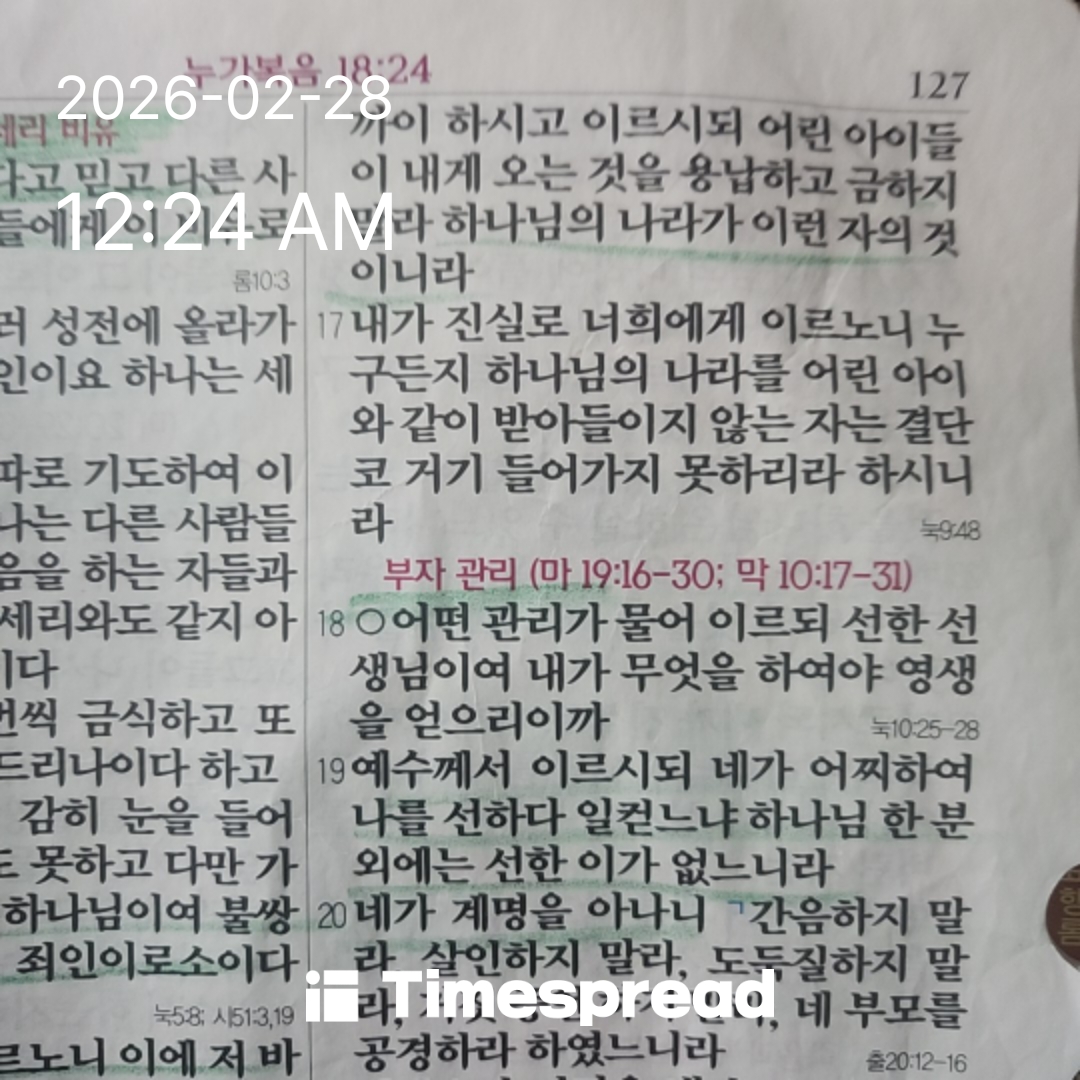 누가복음 18:24
127
2026-02-28
12:24 AM
세리 비유
다고 믿고 다른 사
들에게 이
롬10:3
러 성전에 올라가
인이요 하나는 세
파로 기도하여 이
나는 다른 사람들
음을 하는 자들과
세리와도 같지 아
이다
번씩 금식하고 또
드리나이다 하고
감히 눈을 들어
도 못하고 다만 가
하나님이여 불쌍
죄인이로소이다
눅5:8; 시51:3,19
르노니 이에 저 바
까이 하시고 이르시되 어린 아이들
이 내게 오는 것을 용납하고 금하지
말라 하나님의 나라가 이런 자의 것
이니라
17 내가 진실로 너희에게 이르노니 누
구든지 하나님의 나라를 어린 아이
와 같이 받아들이지 않는 자는 결단
코 거기 들어가지 못하리라 하시니
라
눅9:48
부자 관리 (마 19:16-30; 막 10:17-31)
18 ○어떤 관리가 물어 이르되 선한 선
생님이여 내가 무엇을 하여야 영생
을 얻으리이까
눅10:25-28
19 예수께서 이르시되 네가 어찌하여
나를 선하다 일컫느냐 하나님 한 분
외에는 선한 이가 없느니라
20 네가 계명을 아나니 「간음하지 말
라, 살인하지 말라, 도둑질하지 말
라, 네 부모를
공경하라 하였느니라
출20:12-16
Timespread